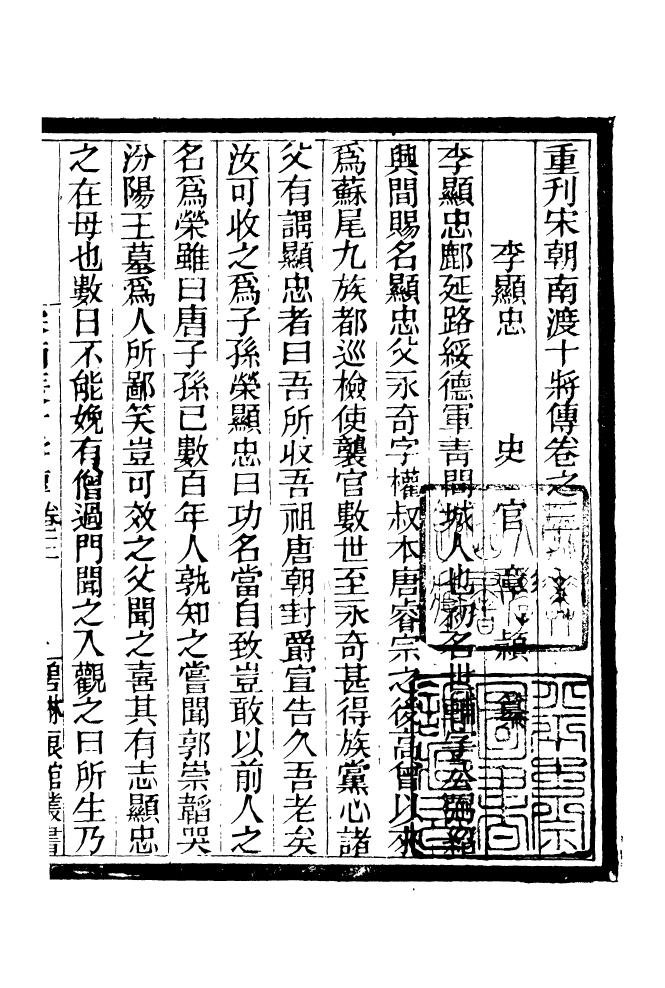 重刊宋朝南渡十將傳卷之三
李顯忠　史官章穎纂
李顯忠鄜延路綏德軍青澗城人也初名世輔字公弼紹
興間賜名顯忠父永奇字權叔本唐睿宗之後高曾以來
爲蘇尾九族都巡檢使襲官數世至永奇甚得族黨心諸
父有謂顯忠者曰吾所收吾祖唐朝封爵宣告久吾老矣
汝可收之爲子孫榮顯忠曰功名當自致豈敢以前人之
名爲榮雖曰唐子孫已數百年人孰知之嘗聞郭崇韜哭
汾陽王墓爲人所鄙笑豈可效之父聞之喜其有志顯忠
之在母也數日不能娩有僧過門聞之入觀之曰所生乃
卷三
碧琳琅館叢書